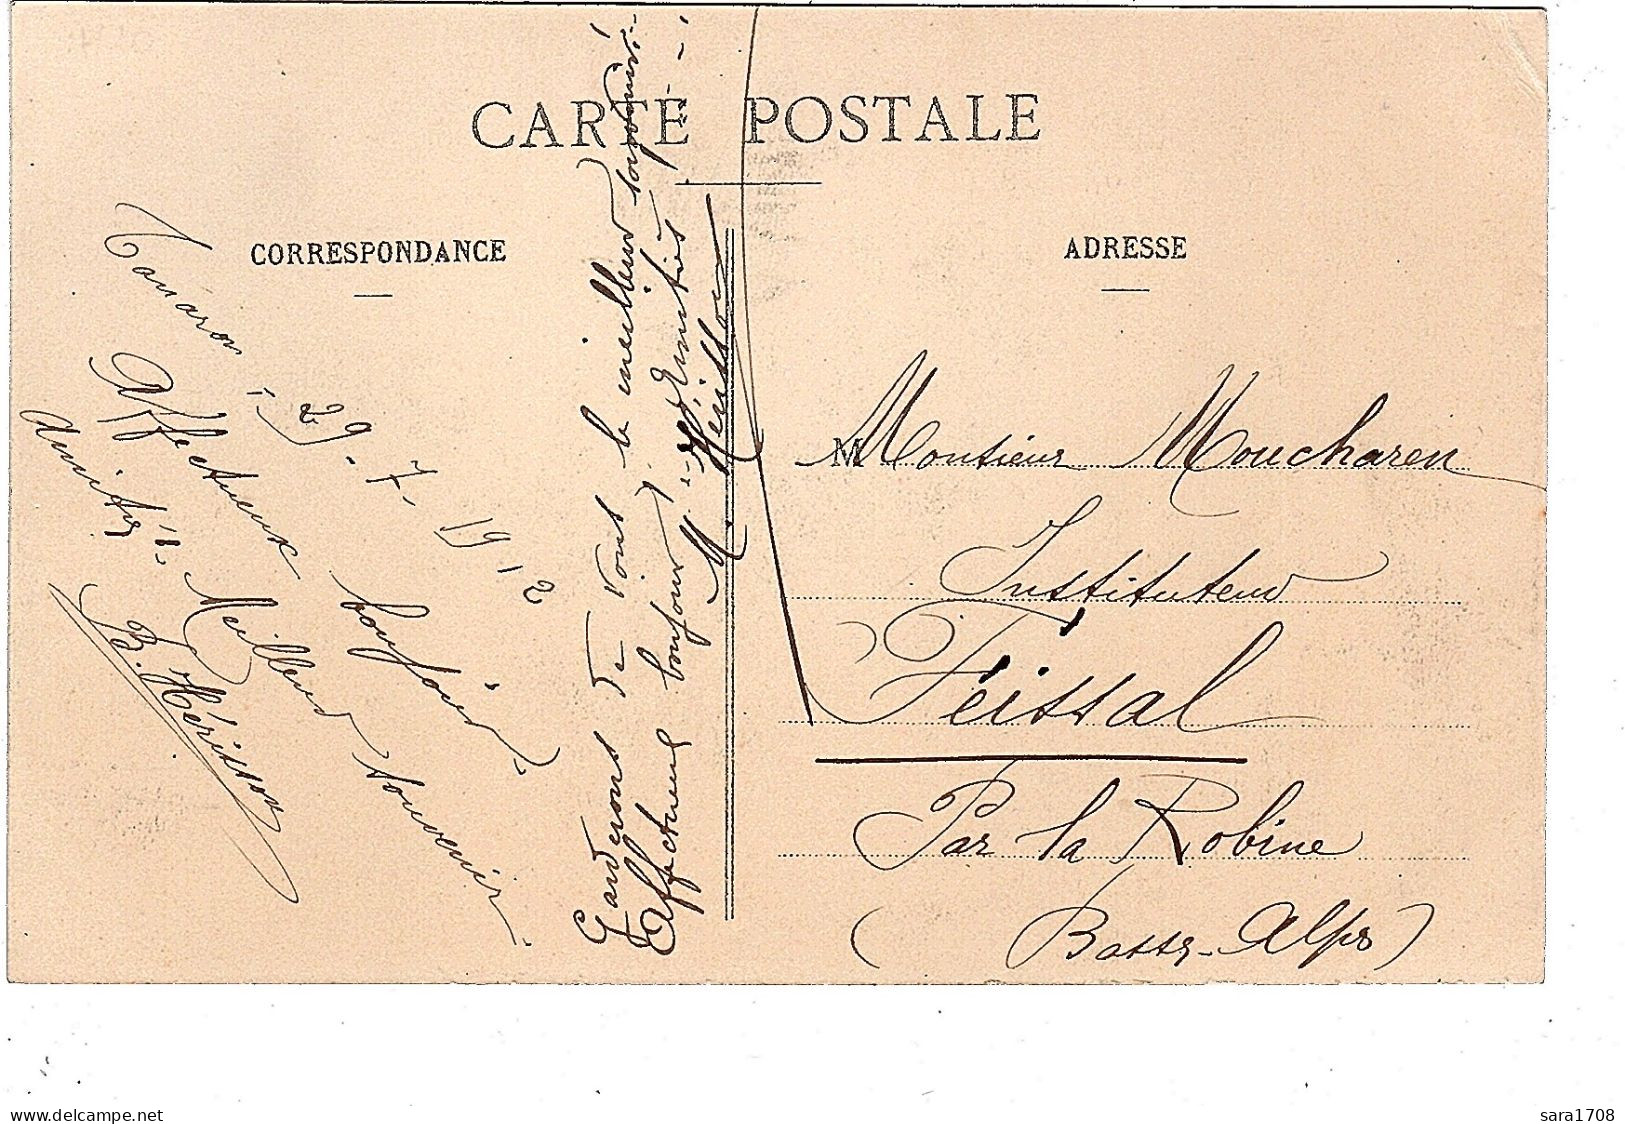 CARTE POSTALE
CORRESPONDANCE
ADRESSE
Tanaron, 29-7-1912
Affectueux bonjours
amitiés Meilleurs souvenirs
B. Hérisson
Garderons de vous le meilleur souvenir
Affectueux bonjours Amitiés
M. Hérisson
M Monsieur Moucharen
Instituteur
Féissal
Par la Robine
(Basses-Alpes)
www.delcampe.net
sara1708